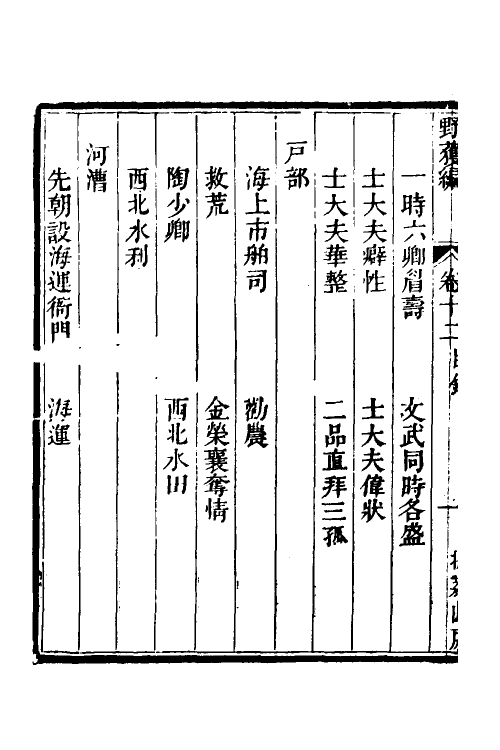 野獲編 卷十二 目錄 一
一時六卿眉壽 文武同時各盛
士大夫癖性 士大夫偉狀
士大夫華整 二品直拜三孤
戸部
海上市舶司 勸農
救荒 金榮襄奪情
陶少卿 西北水田
西北水利
河漕
先朝設海運衙門 海運